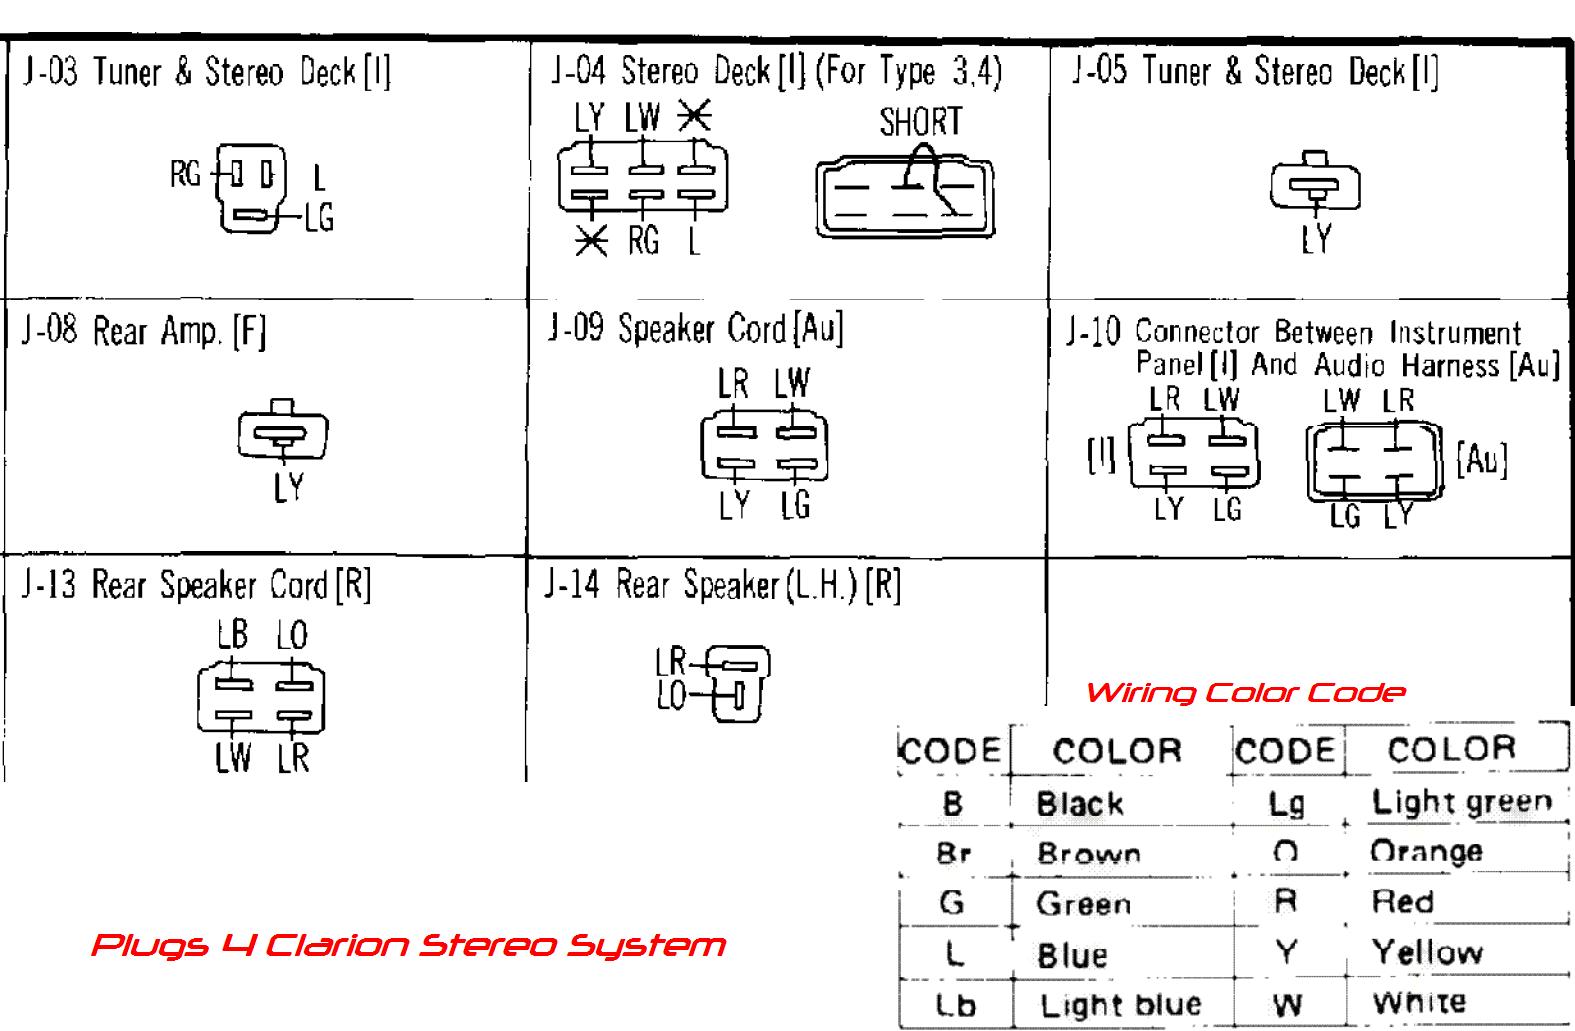 J-03 Tuner & Stereo Deck [I]
RG
L
LG
J-04 Stereo Deck [I] (For Type 3,4)
LY LW
SHORT
RG L
J-05 Tuner & Stereo Deck [I]
LY
J-08 Rear Amp. [F]
LY
J-09 Speaker Cord [Au]
LR LW
LY LG
J-10 Connector Between Instrument
Panel [I] And Audio Harness [Au]
LR LW
LW LR
[I]
[Au]
LY LG
LG LY
J-13 Rear Speaker Cord [R]
LB LO
LW LR
J-14 Rear Speaker (L.H.) [R]
LR
LO
Wiring Color Code
CODE COLOR CODE COLOR
B Black Lg Light green
Br Brown O Orange
G Green R Red
L Blue Y Yellow
Lb Light blue W White
Plugs 4 Clarion Stereo System